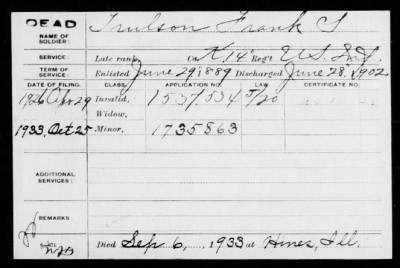 DEAD
NAME OF SOLDIER: Trulson Frank T
SERVICE: Late rank, Co K 14" Reg't U.S. Inf.
TERM OF SERVICE: Enlisted June 29, 1889 Discharged June 28, 1902
DATE OF FILING. CLASS. APPLICATION NO. LAW. CERTIFICATE NO.
1926 Apr 29 Invalid, 1537534 5/20
Widow,
1933, Oct 25 Minor, 1735863
ADDITIONAL SERVICES:
REMARKS:
Died Sep 6, 1933 at Hines, Ill.